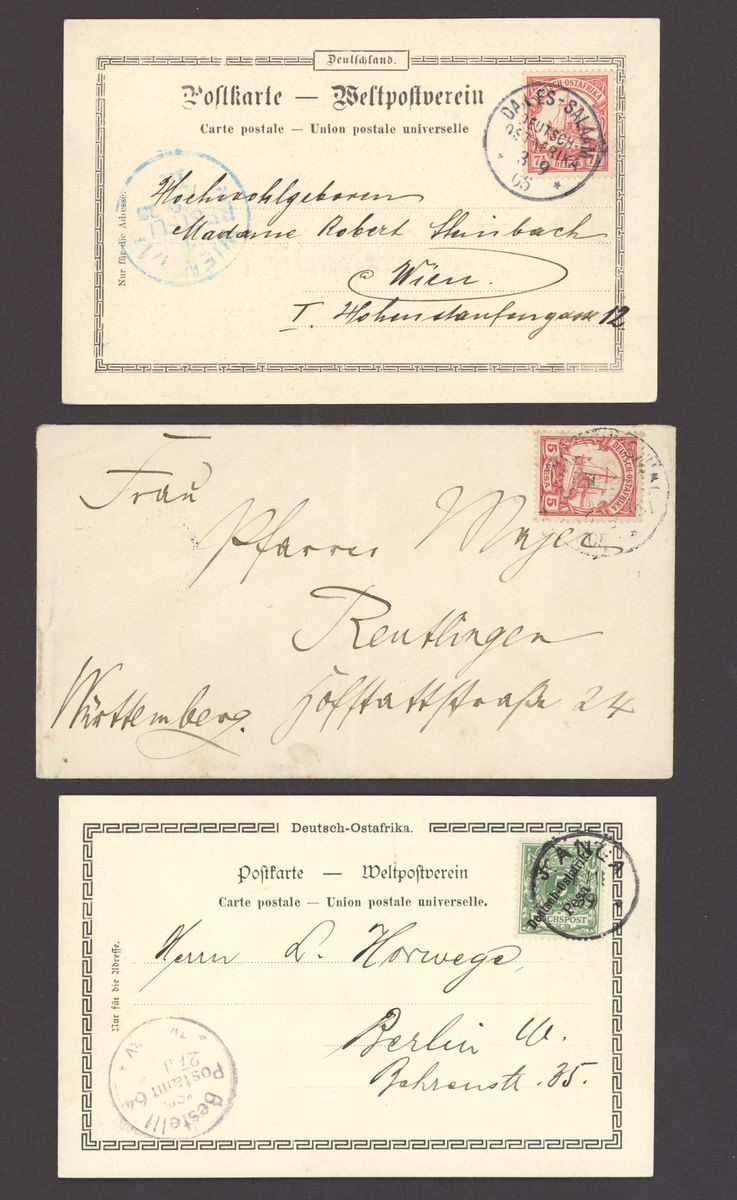 Deutschland.
Postkarte — Weltpostverein
Carte postale — Union postale universelle
DEUTSCH-OSTAFRIKA
DAR-ES-SALAAM
DEUTSCH-
OSTAFRIKA
3 9
05
Nur für die Adresse.
Hochwohlgeboren
Madame Robert Steinbach
Wien.
I. Hohenstaufengasse 12
WIEN 1/1
BESTELLT
DEUTSCH-OSTAFRIKA
5 PESA 5
05
Frau
Pfarrer Majer
Reutlingen
Württemberg. Hofstattstraße 24
Deutsch-Ostafrika.
Postkarte — Weltpostverein
Carte postale — Union postale universelle.
TANGA
Deutsch-Ostafrika
3 Pesa
REICHSPOST
Nur für die Adresse.
Herrn L. Horwege,
Berlin W.
Behrenstr. 35.
Bestellt
vom
Postamt 64
27 11
Postkarte — Weltpostverein
Carte postale — Union postale universelle.